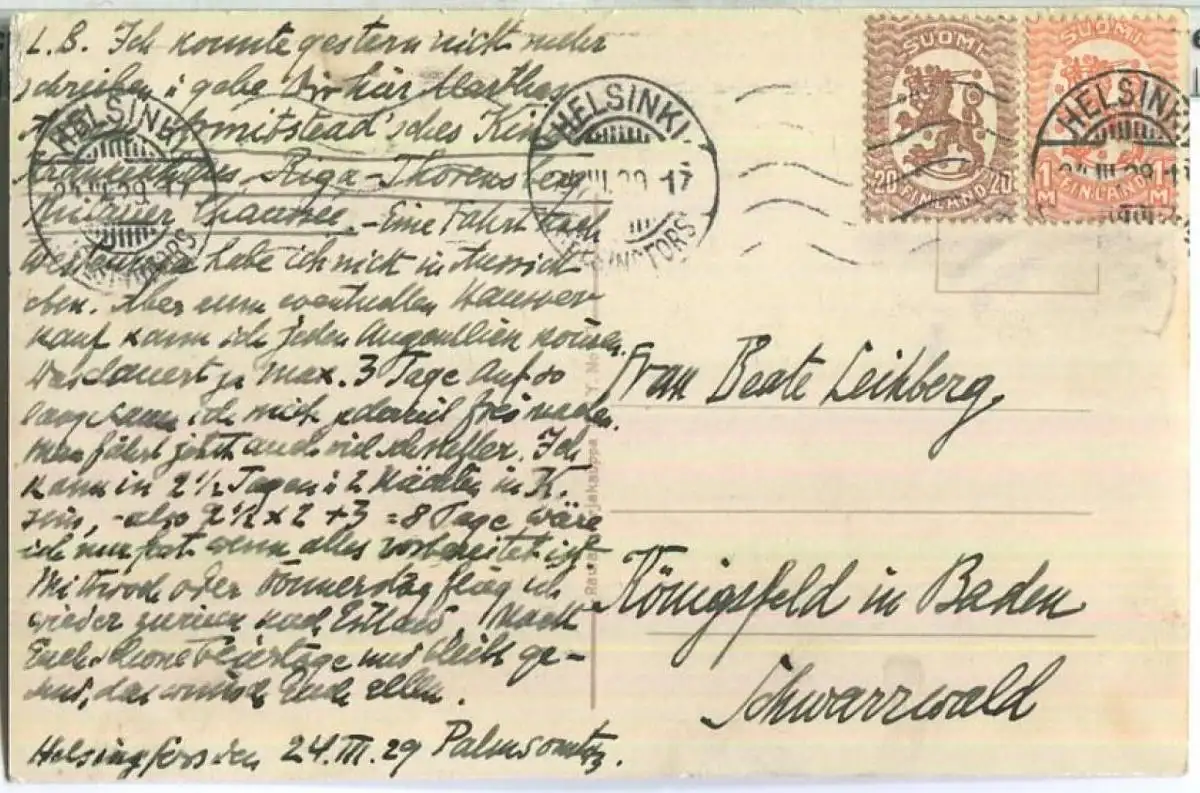 L.B. Ich konnte gestern nicht mehr
schreiben i gebe Dir hier Marthas
Armitstead'sches Kin
Krankenhaus, Riga-Thorensberg
Mitauer Chaussée. – Eine Fahrt nach
habe ich nicht in Aussicht
Aber zum eventuellen Hausver
kauf kann ich jeden Augenblick kommen.
Das dauert ja max. 3 Tage Auf so
lange kann ich mich jederzeit frei machen.
Man fährt jetzt auch viel schneller. Ich
kann in 2 1/2 Tagen i 2 Nächten in K.
sein, - also 2 1/2 x 2 + 3 = 8 Tage wäre
ich nur fort wenn alles vorbereitet ist
Mittwoch oder Donnerstag flieg ich
wieder zurück nach Estland Macht
Euch schöne Feiertage und bleibt ge-
sund, das wünsch Euch allen.
Helsingfors den 24.III.29 Palmsonntg.
HELSINKI
24.III.29 17
HELSINGFORS
HELSINKI
III.29 17
HELSINGFORS
HELSINKI
24.III.29 17
SUOMI
20 FINLAND 20
SUOMI
1 M FINLAND 1 M
Frau Beate Leihberg,
Königsfeld in Baden
Schwarzwald